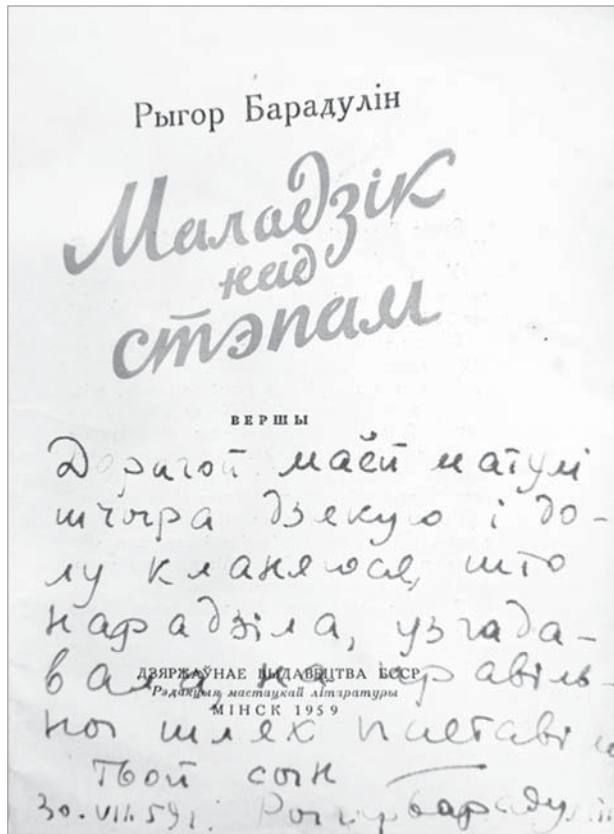 Рыгор Барадулін
Маладзік
над
стэпам
ВЕРШЫ
Дорагой маёй матулі
шчыра дзякую і до-
лу кланяюся, што
нарадзіла, узгада-
вала, на правіль-
ДЗЯРЖАЎНАЕ ВЫДАВЕЦТВА БССР
Рэдакцыя мастацкай літаратуры
МІНСК 1959
ны шлях паставіла
Твой сын
30.VII.59г. Рыгор Барадулін